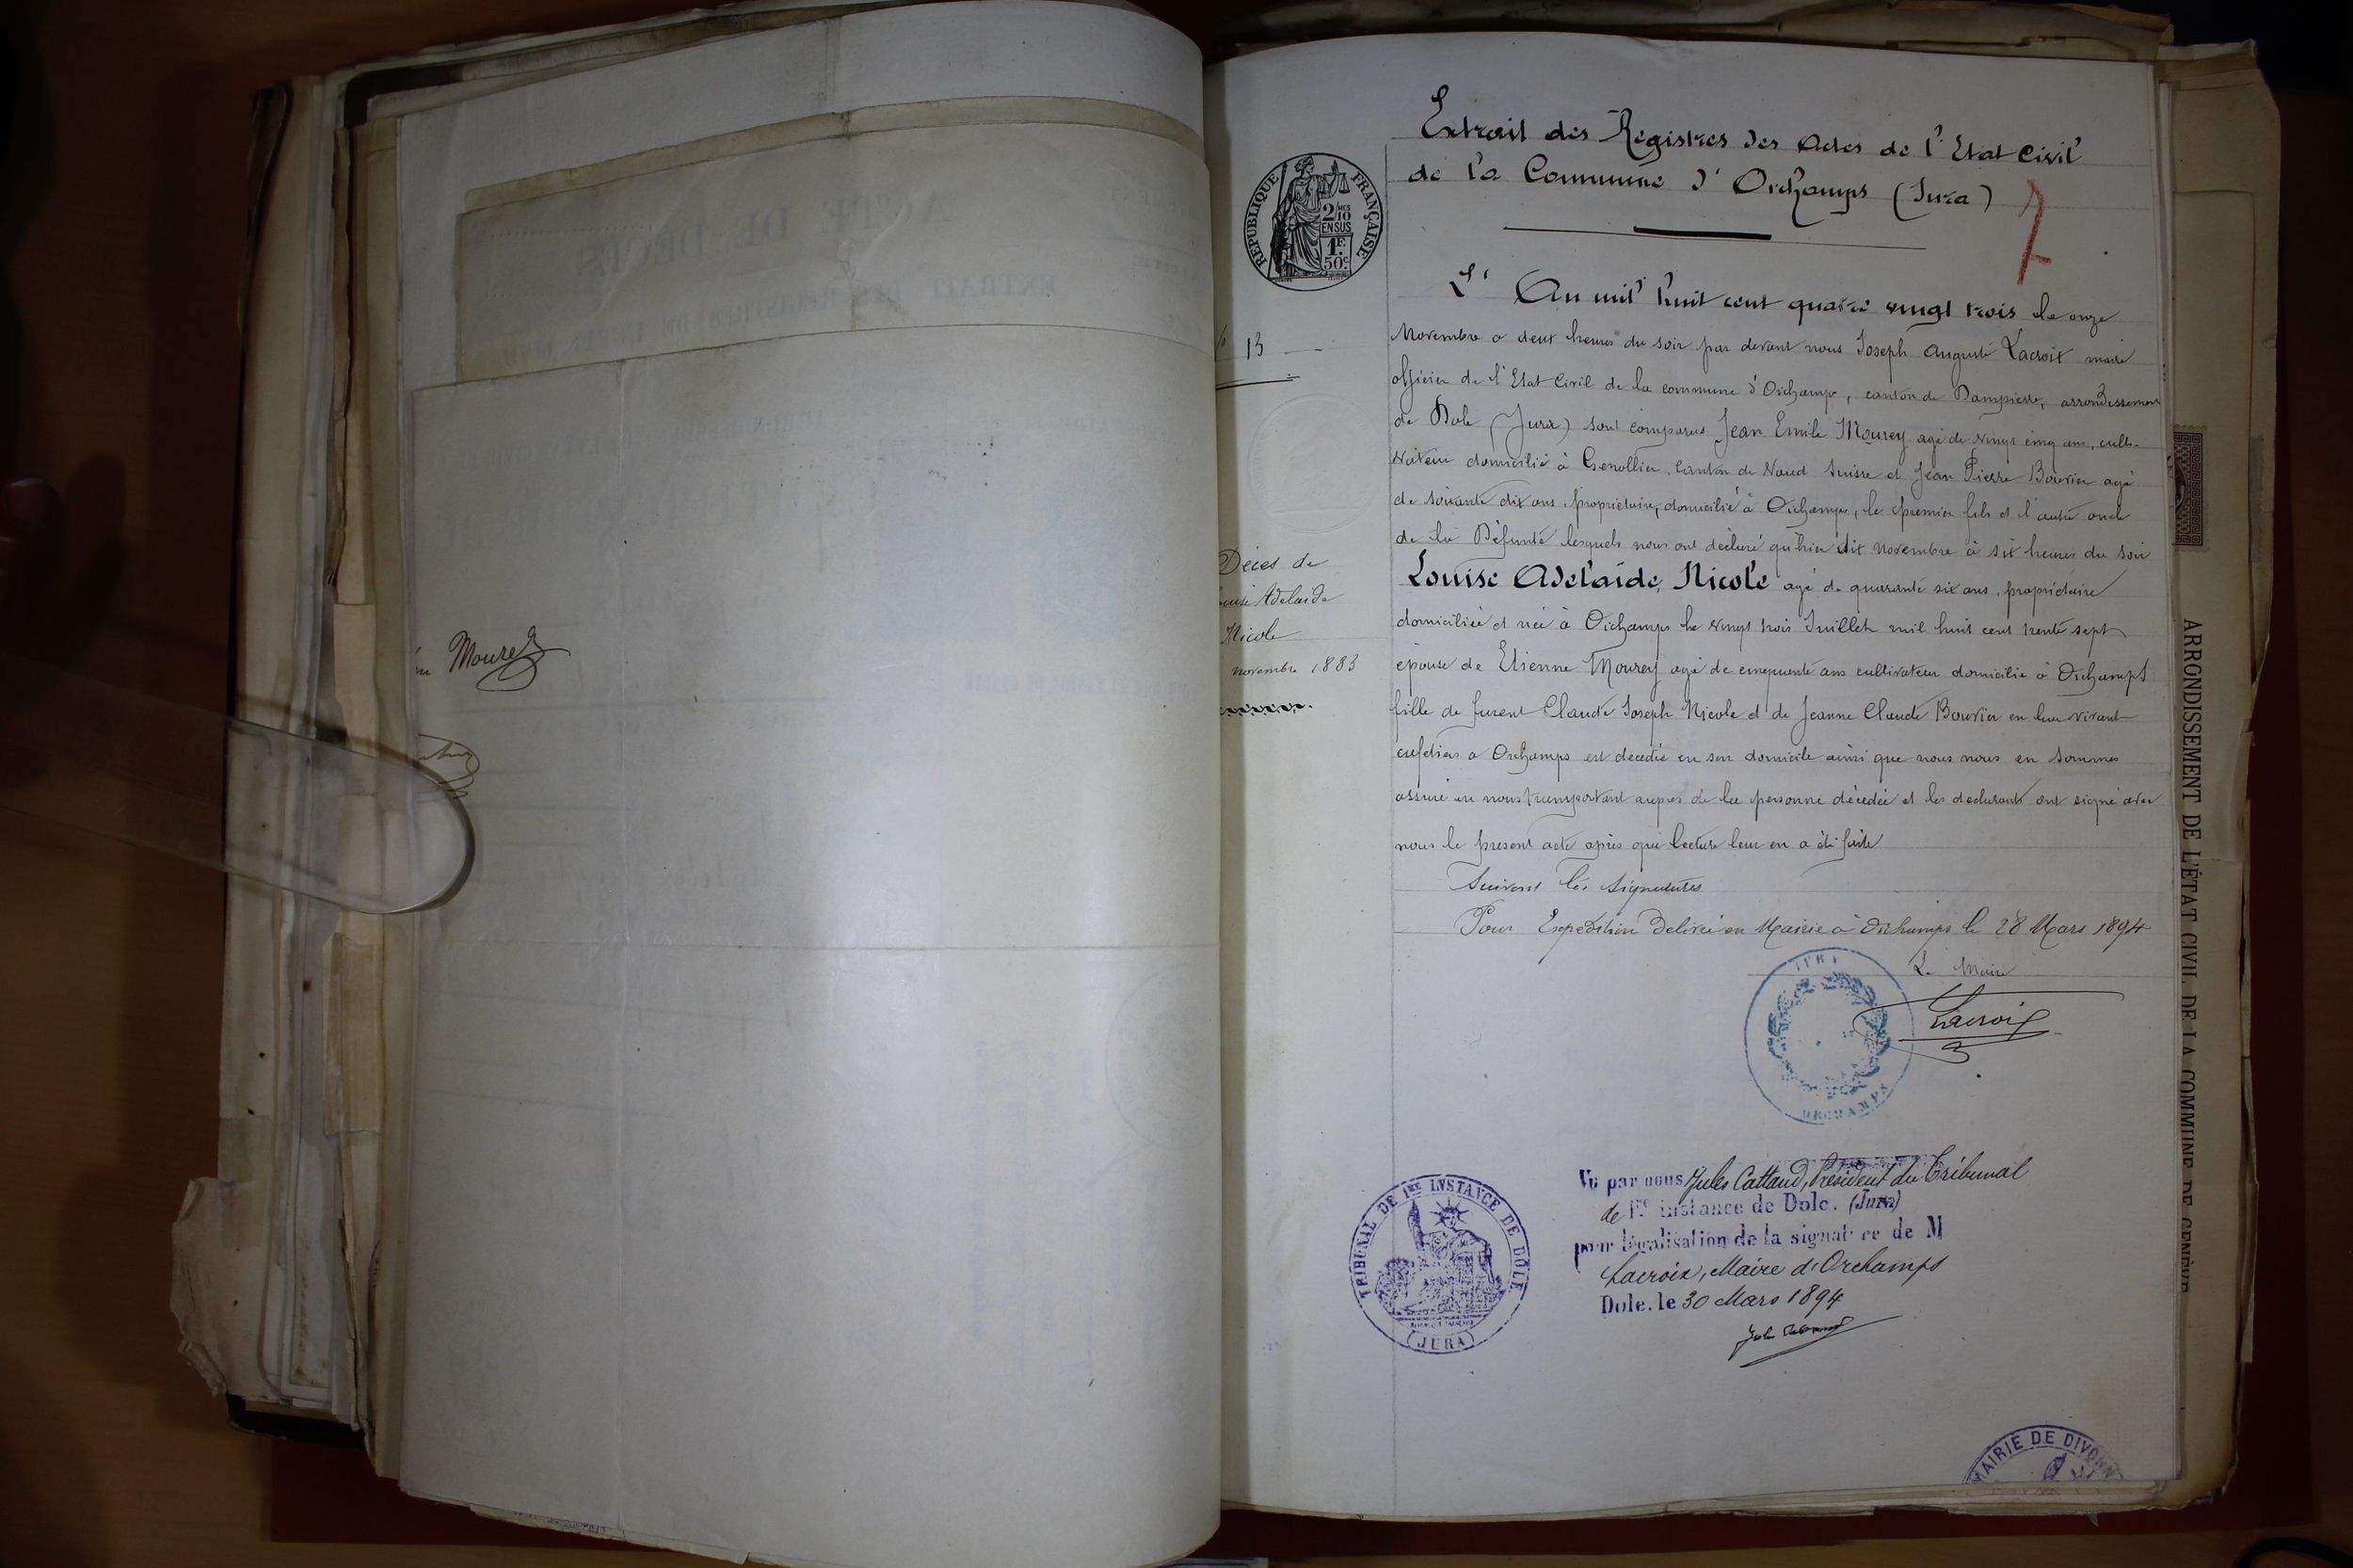 Moure
Extrait des Registres des Actes de l'Etat Civil
de la Commune d'Orchamps (Jura)
7
RÉPUBLIQUE FRANÇAISE
2/10
EN SUS
1F
50c
L'An mil huit cent quatre vingt trois le onze
Novembre à deux heures du soir par devant nous Joseph Auguste Lacroix maire
officier de l'Etat Civil de la commune d'Orchamps, canton de Dampierre, arrondissement
de Dole (Jura) sont comparus Jean Emile Mourey agé de vingt cinq ans, culti-
vateur domicilié à Genollier, Canton de Vaud Suisse et Jean Pierre Bouvier agé
de soixante dix ans, propriétaire, domicilié à Orchamps, le premier fils et l'autre oncle
de la Défunte lesquels nous ont déclaré qu'hier dix novembre à six heures du soir
Louise Adelaïde, Nicole agé de quarante six ans, propriétaire
domiciliée et née à Orchamps le vingt trois Juillet mil huit cent trente sept
épouse de Etienne Mourey agé de cinquante ans cultivateur domicilié à Orchamps
fille de furent Claude Joseph Nicole et de Jeanne Claude Bouvier en leur vivant
cafetiers à Orchamps est décédée en son domicile ainsi que nous nous en sommes
assuré en nous transportant auprès de la personne décédée et les déclarants ont signé avec
nous le présent acte après que lecture leur en a été faite
Suivent les signatures
Pour Expédition Délivrée en Mairie à Orchamps le 28 Mars 1894
Le Maire
Lacroix
13
Décès de
Louise Adelaïde
Nicole
novembre 1883
JURA
ORCHAMPS
TRIBUNAL DE 1RE INSTANCE DE DOLE
(JURA)
Vu par nous Jules Cattand, Président du Tribunal
de 1re instance de Dole. (Jura)
pour légalisation de la signature de M
Lacroix, Maire d'Orchamps
Dole, le 30 Mars 1894
MAIRIE DE DIVONN
ARRONDISSEMENT DE L'ÉTAT CIVIL DE LA COMMUNE DE GENÈVE
ACTE DE DÉCÈS